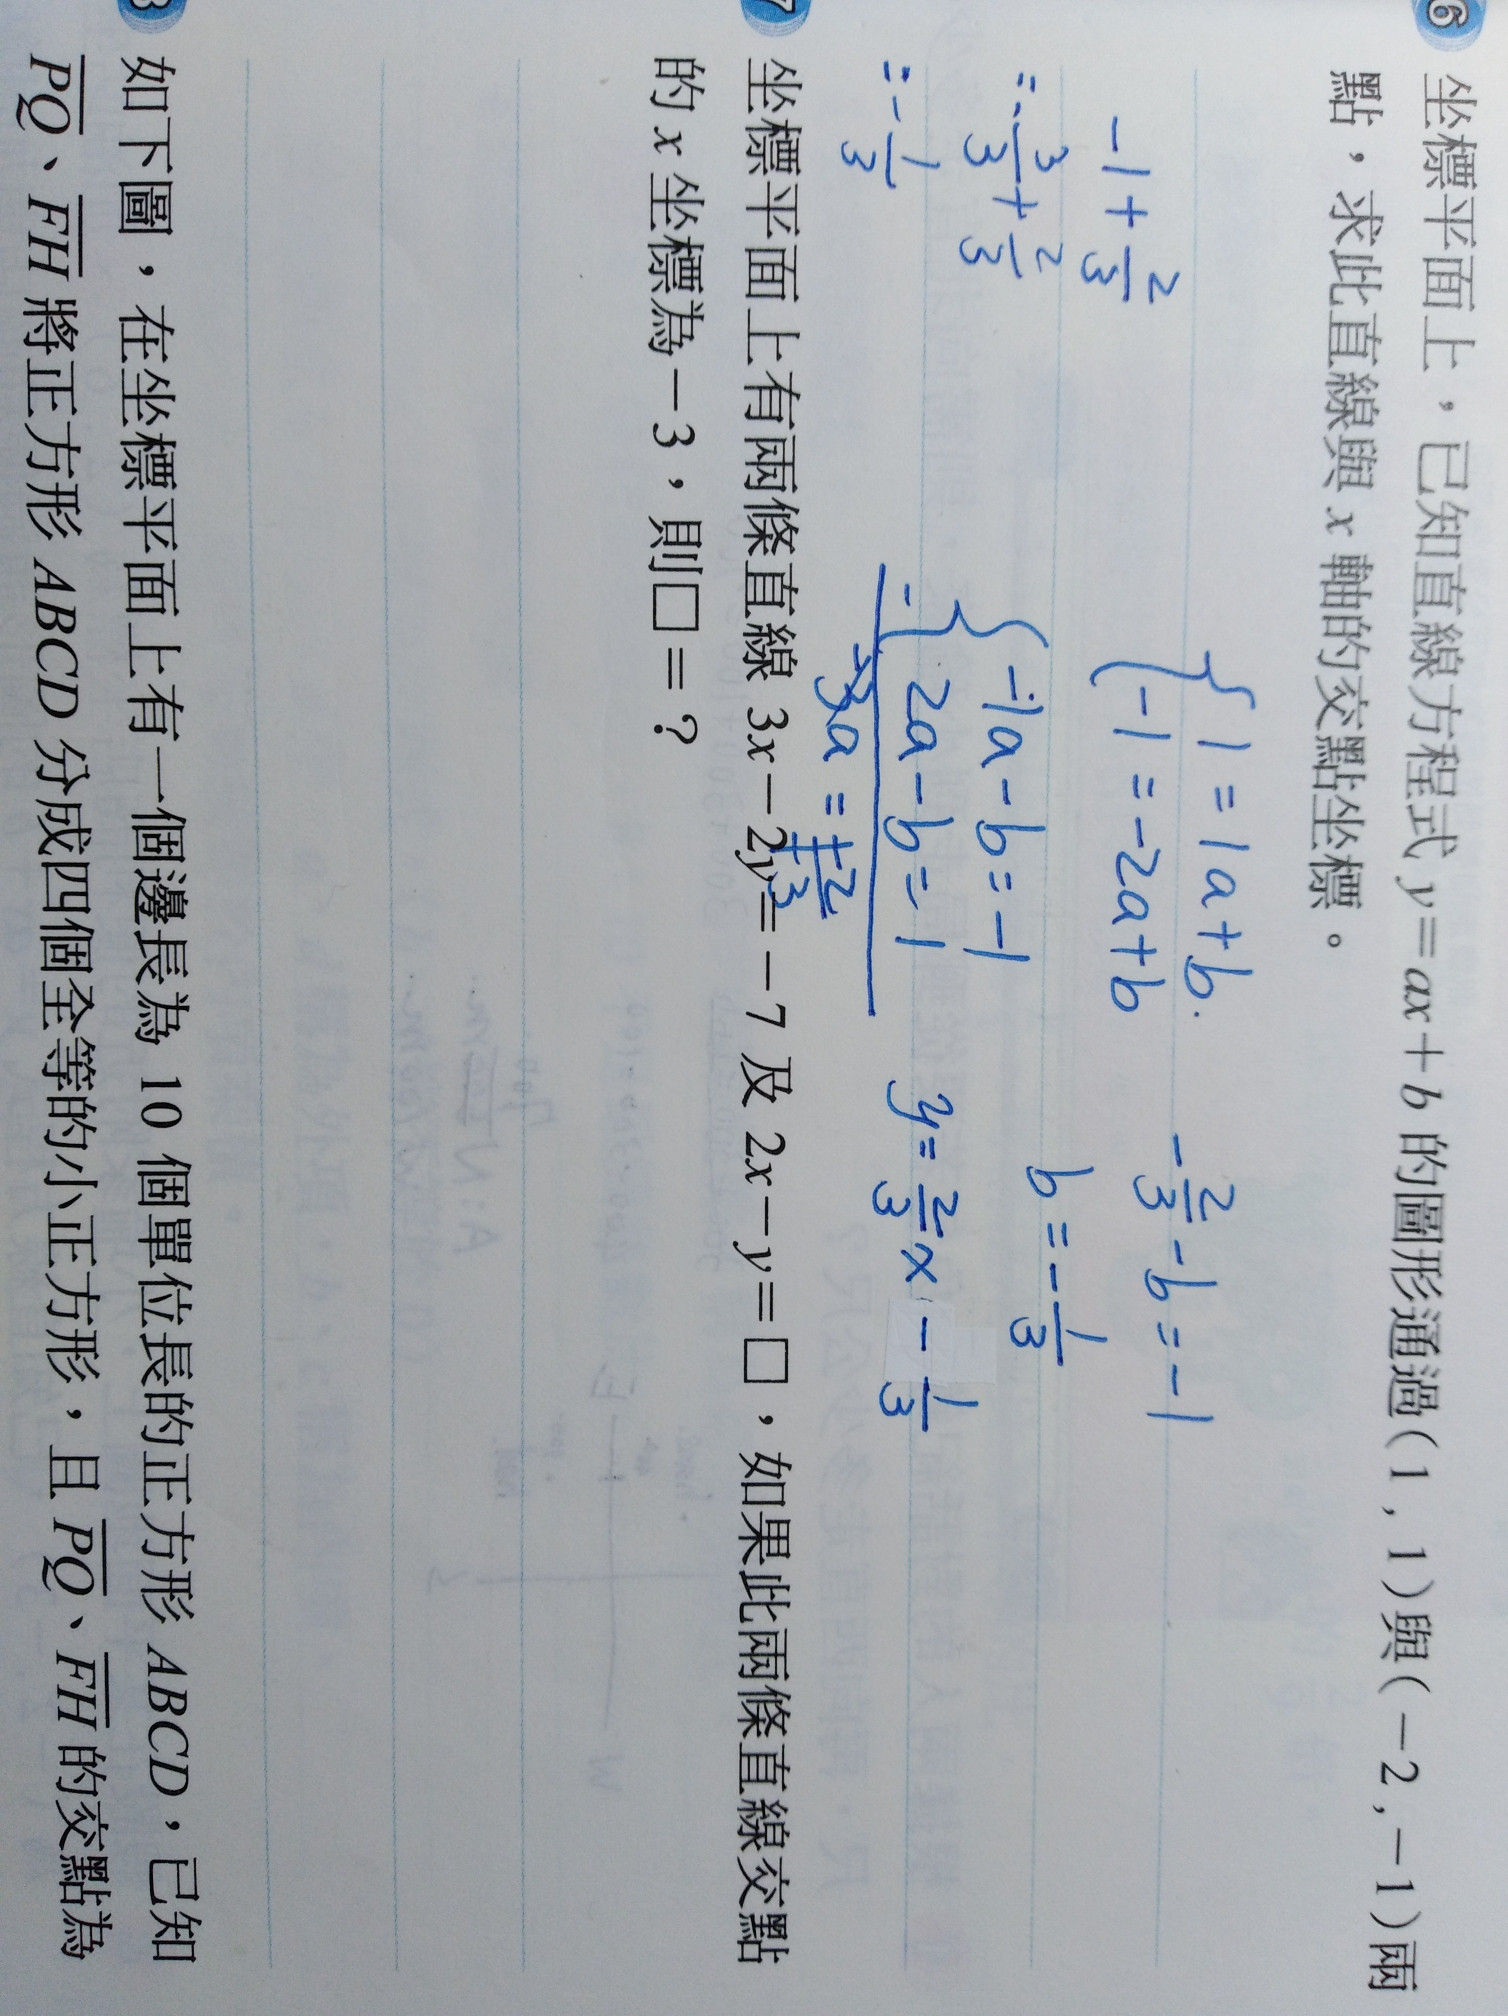 6 坐標平面上，已知直線方程式 y＝ax＋b 的圖形通過( 1 , 1 )與( －2 ,－1 )兩
點，求此直線與 x 軸的交點坐標。
{ 1 = 1a + b.
-1 = -2a + b
{ -1a - b = -1
- ) 2a - b = 1
-1 + 2/3
= - 3/3 + 2/3
= - 1/3
- 2/3 - b = -1
b = - 1/3
y = 2/3 x - 1/3
7 坐標平面上有兩條直線 3x－2y＝－7 及 2x－y＝□，如果此兩條直線交點
的 x 坐標為－3，則□＝？
8 如下圖，在坐標平面上有一個邊長為 10 個單位長的正方形 ABCD，已知
PQ、FH 將正方形 ABCD 分成四個全等的小正方形，且 PQ、FH 的交點為